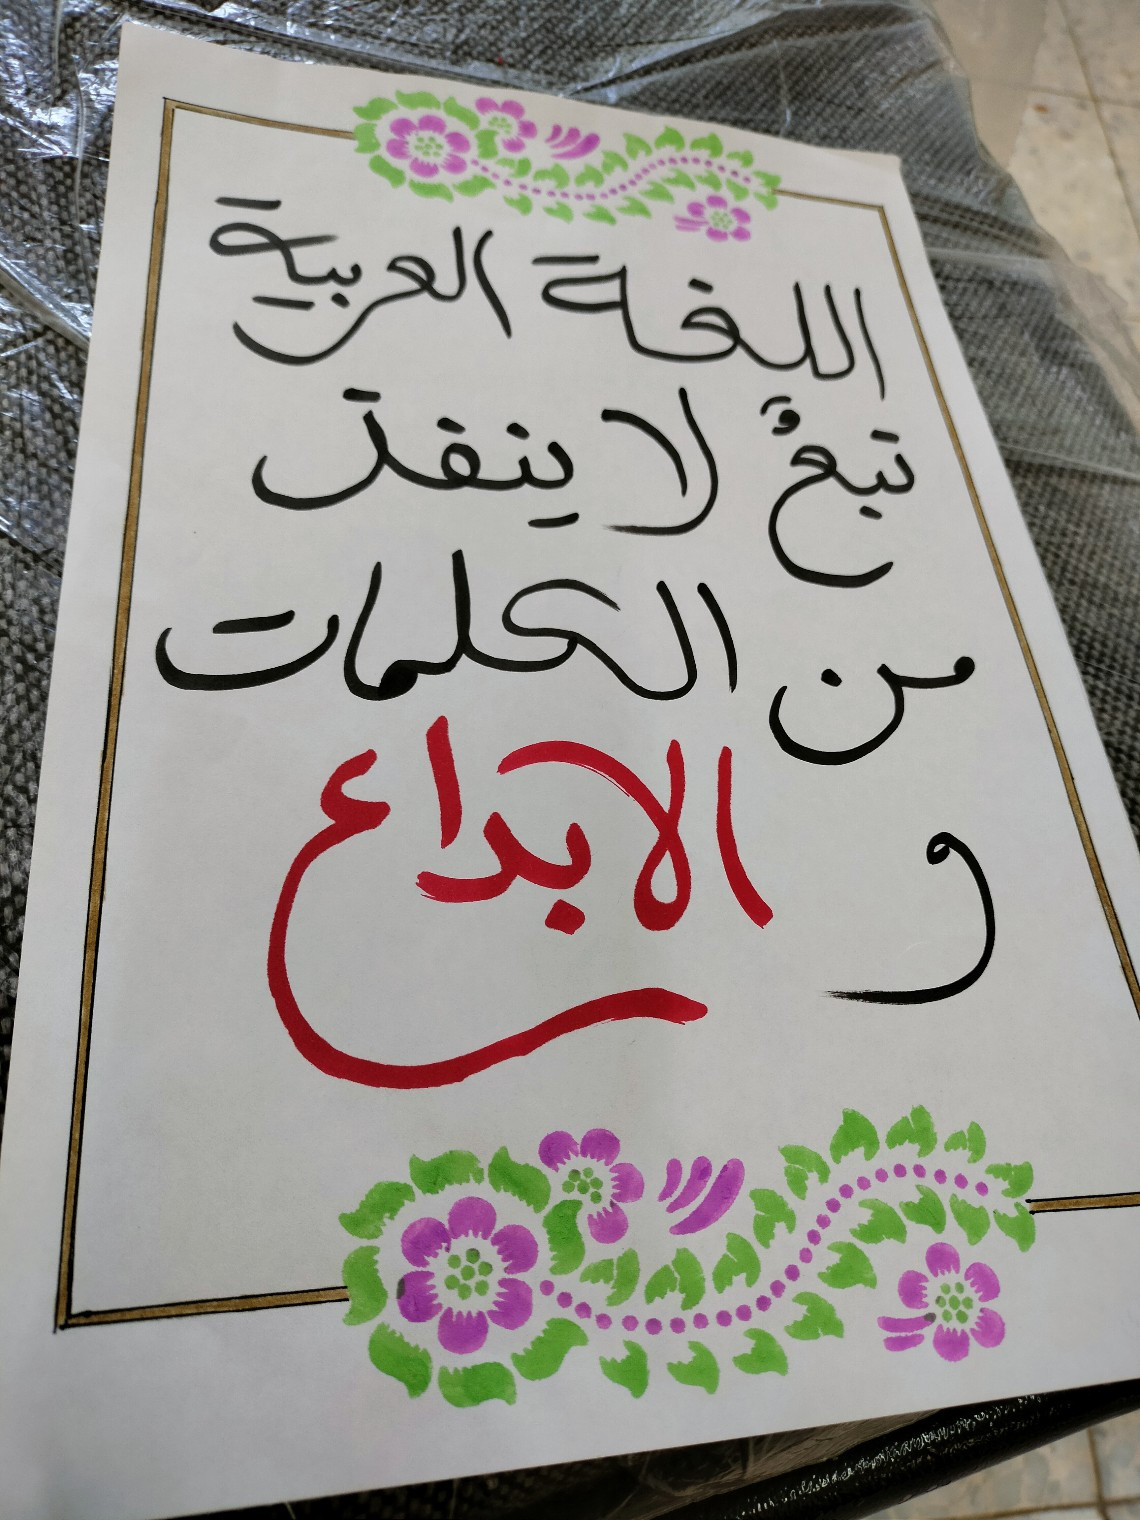 اللغة العربية
نبعٌ لا ينفد
من الكلمات
و الابداع